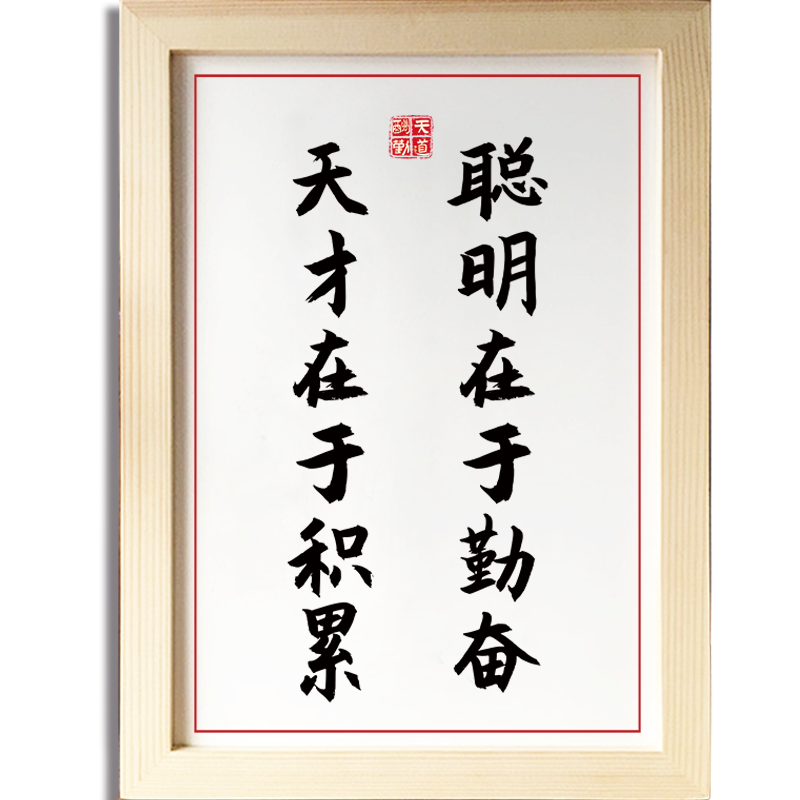 聪明在于勤奋
天才在于积累
天道酬勤